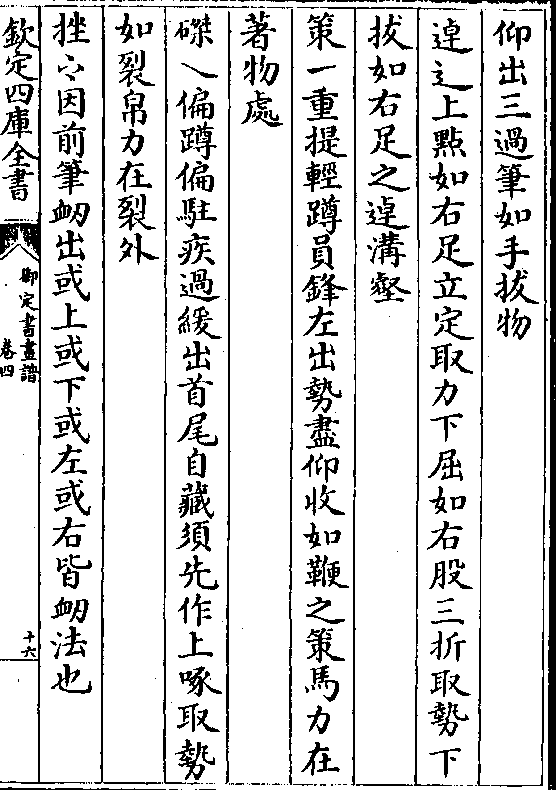 仰出三過筆如手拔物
逴辶上點如右足立定取力下屈如右股三折取勢下
拔如右足之逴溝壑
策一重提輕蹲員鋒左出勢盡仰收如鞭之策馬力在
著物處
磔乀偏蹲偏駐疾過緩出首尾自藏須先作上啄取勢
如裂帛力在裂外
挫因前筆衂出或上或下或左或右皆衂法也
欽定四庫全書
御定書畫譜
卷四
十六